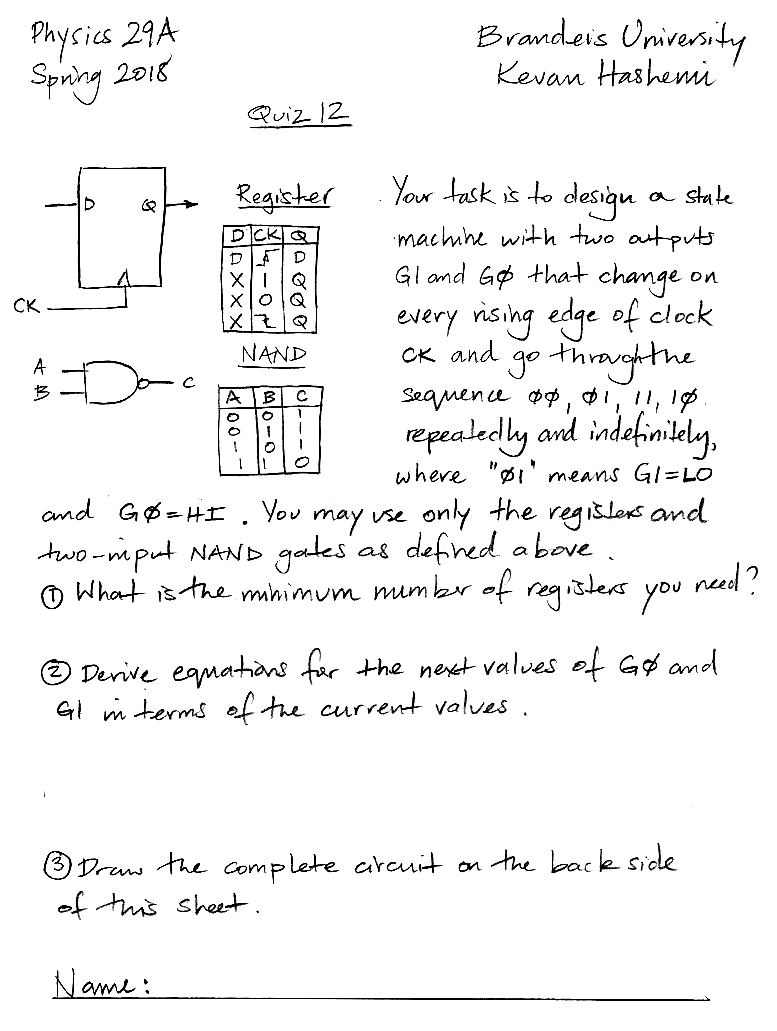 Physics 29A
Spring 2018
Brandeis University
Kevan Hashemi
Quiz 12
D Q
CK
Register
D CK Q
D D
X 1 Q
X 0 Q
X Q
A
B
C
NAND
A B C
0 0 1
0 1 1
1 0 1
1 1 0
Your task is to design a state
machine with two outputs
G1 and GØ that change on
every rising edge of clock
CK and go through the
sequence ØØ, Ø1, 11, 1Ø
repeatedly and indefinitely,
where "Ø1" means G1=LO
and GØ=HI. You may use only the registers and
two-input NAND gates as defined above.
① What is the minimum number of registers you need?
② Derive equations for the next values of GØ and
G1 in terms of the current values.
③ Draw the complete circuit on the back side
of this sheet.
Name: